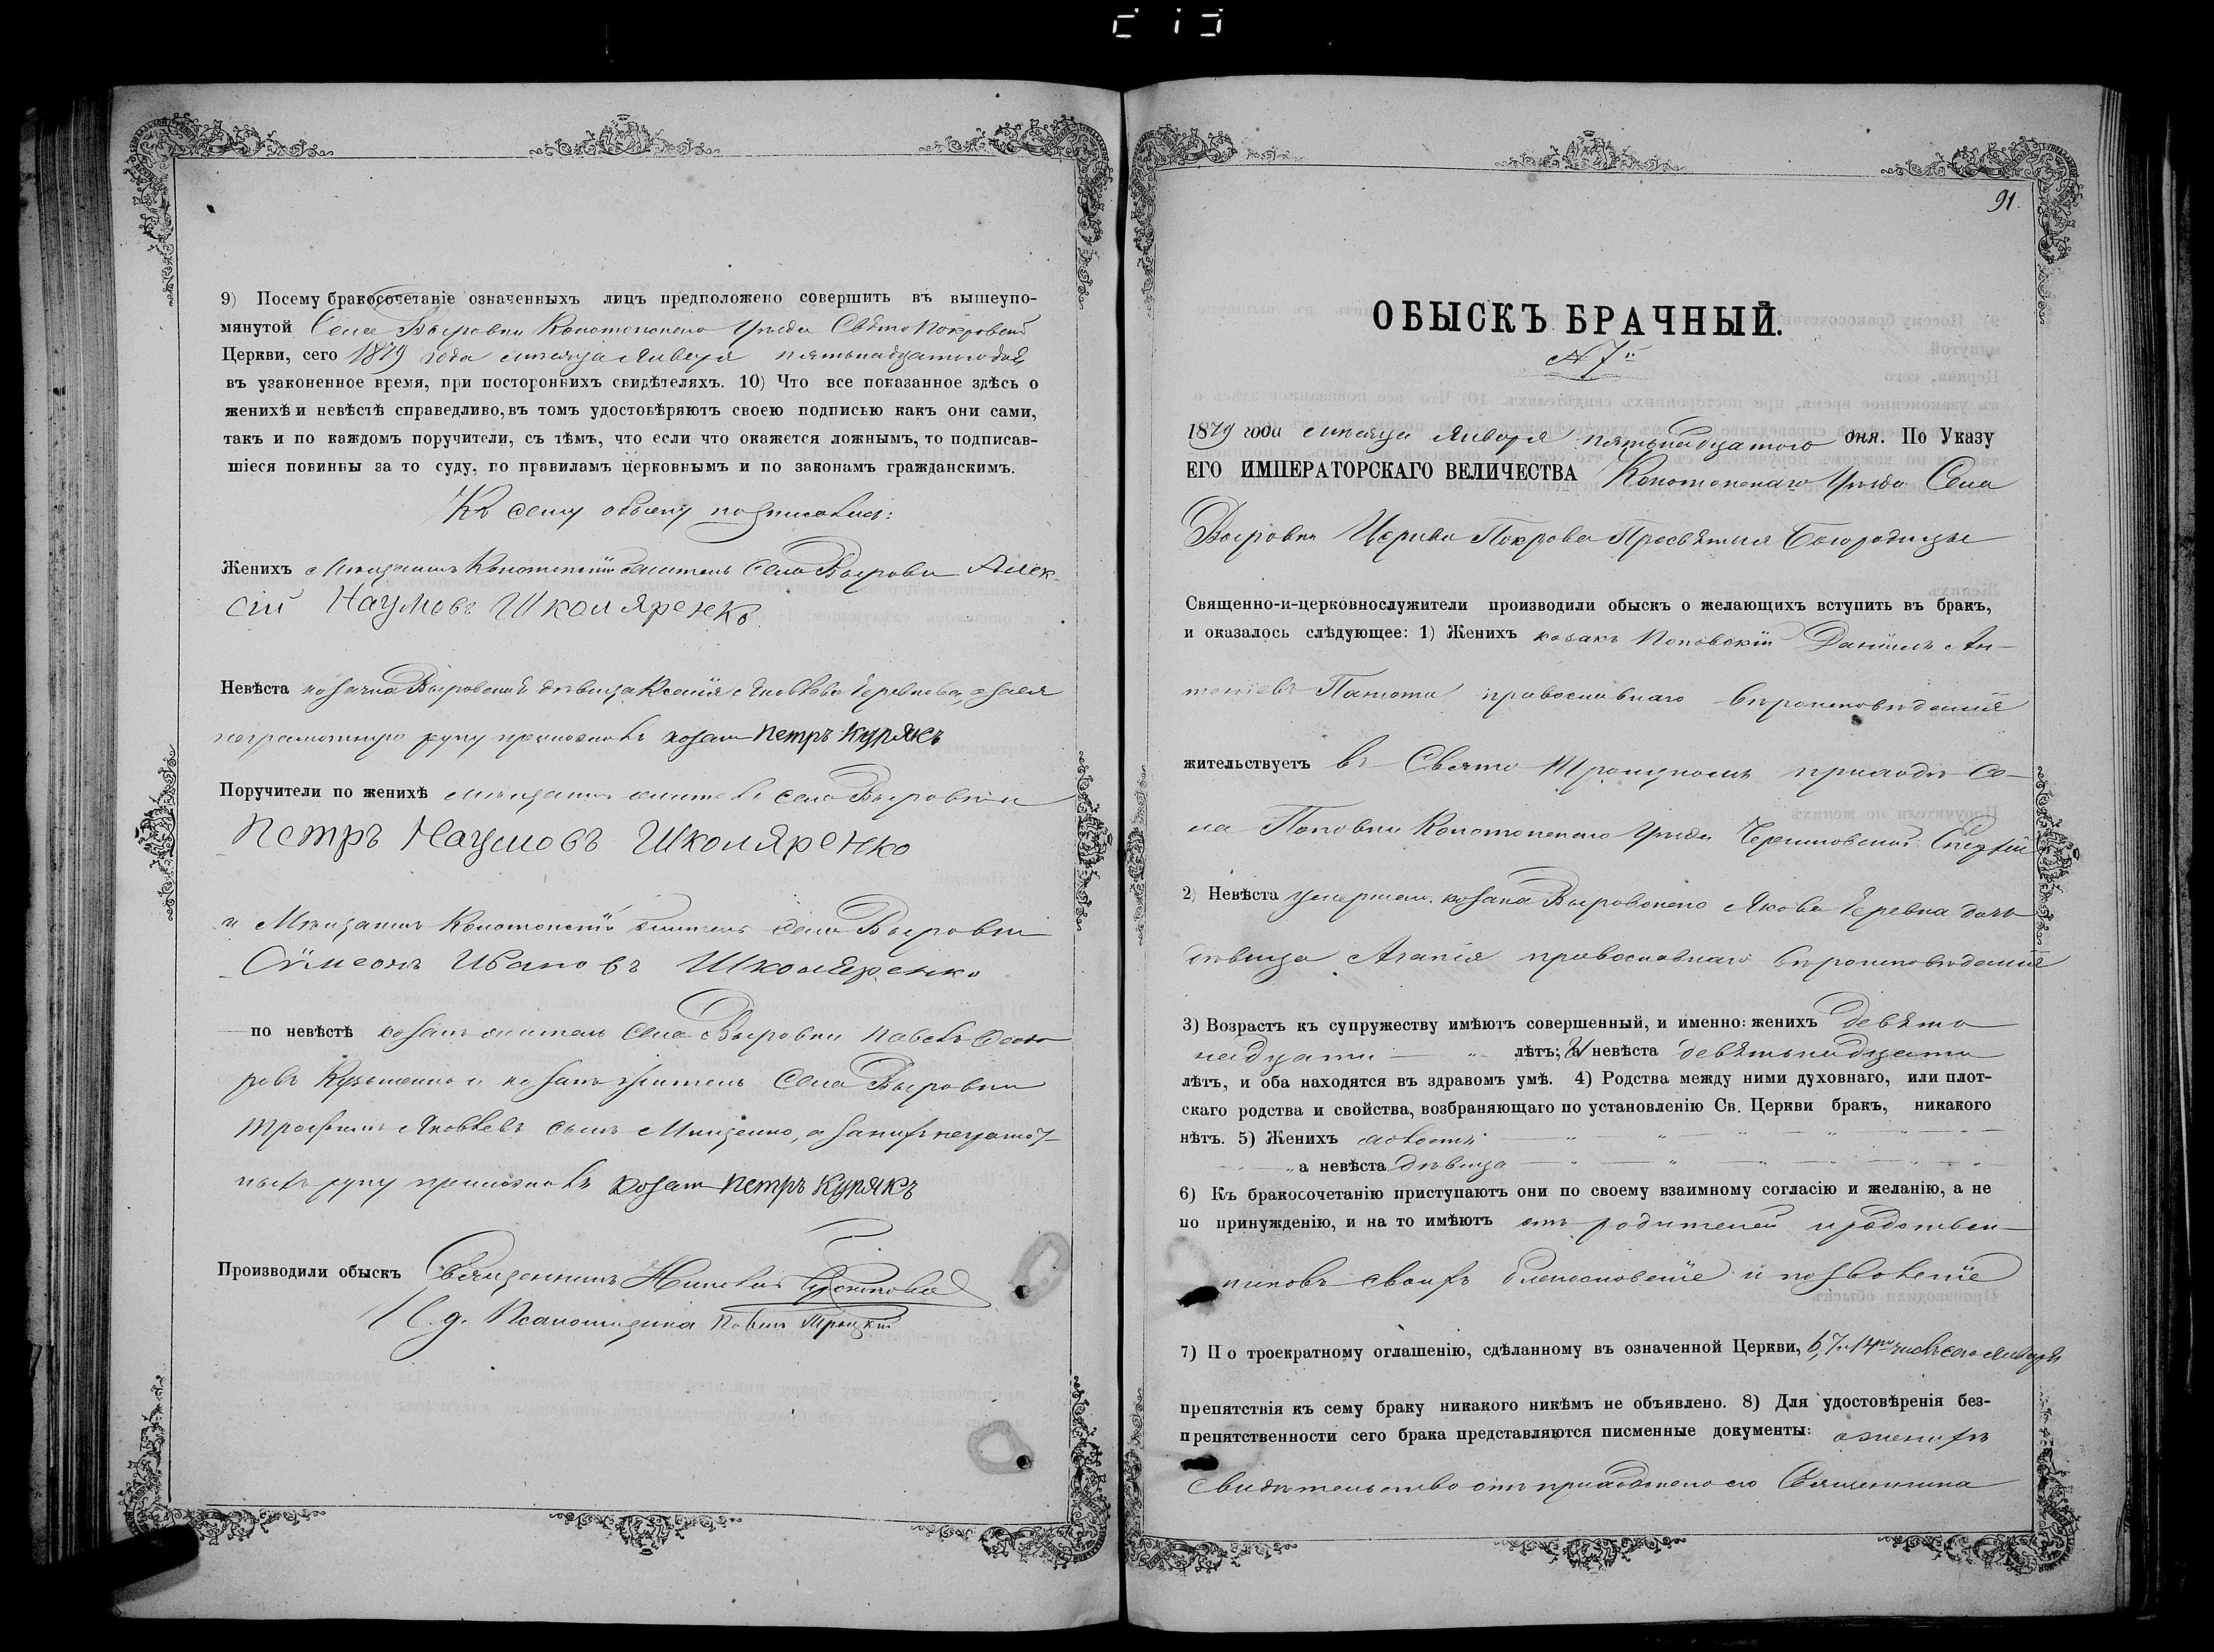 9) Посему бракосочетаніе означенныхъ лицъ предположено совершить въ вышеупо-
мянутой Села Выровки Конотопскаго Уѣзда Свято Покровской
Церкви, сего 1879 года мѣсяца Января пятьнадцатого дня
въ узаконенное время, при постороннихъ свидѣтеляхъ. 10) Что все показанное здѣсь о
женихѣ и невѣстѣ справедливо, въ томъ удостовѣряютъ своею подписью какъ они сами,
такъ и по каждомъ поручители, съ тѣмъ, что если что окажется ложнымъ, то подписав-
шіеся повинны за то суду, по правиламъ церковнымъ и по законамъ гражданскимъ.
Къ сему обыску подписались:
Женихъ Мѣщанинъ Конотопскій житель Села Выровки Алек-
сій Наумовъ Школяренко
Невѣста козачка Выровская дѣвица Ксенія Яковлева а за ея
неграмотную руку приложилъ козакъ Петръ Курякъ
Поручители по женихѣ мѣщанинъ житель села Выровки
Петръ Наумовъ Школяренко
и Мѣщанинъ Конотопскій житель Села Выровки
Сѵмеонъ Ивановъ Школяренко
по невѣстѣ козакъ житель Села Выровки Павелъ
Кузьменко и козакъ житель Села Выровки
Трофимъ Яковлевъ сынъ Мищенко, а за нихъ неграмот-
ныхъ руку приложилъ козакъ Петръ Курякъ
Производили обыскъ Священникъ Николай
И. д. Псаломщика Павелъ Троицкій
91.
ОБЫСКЪ БРАЧНЫЙ.
№ 7й
1879 года мѣсяца Января пятьнадцатого дня. По Указу
ЕГО ИМПЕРАТОРСКАГО ВЕЛИЧЕСТВА Конотопскаго Уѣзда Села
Выровки Церкви Покрова Пресвятыя Богородицы
Священно-и-церковнослужители производили обыскъ о желающихъ вступить въ бракъ,
и оказалось слѣдующее: 1) Женихъ козакъ Поповскій Даніилъ Ан-
тоніевъ православнаго вѣроисповѣданія
жительствуетъ въ Свято Троицкомъ приходѣ Се-
ла Поповки Конотопскаго Уѣзда Черниговской Епархіи
2) Невѣста умершаго козака Выровскаго Якова Черевка дочь
дѣвица Агапія православнаго вѣроисповѣданія
3) Возрастъ къ супружеству имѣютъ совершенный, и именно: женихъ девято
надцати лѣтъ; а невѣста девятьнадцати
лѣтъ, и оба находятся въ здравомъ умѣ. 4) Родства между ними духовнаго, или плот-
скаго родства и свойства, возбраняющаго по установленію Св. Церкви бракъ, никакого
нѣтъ. 5) Женихъ холостъ
а невѣста дѣвица
6) Къ бракосочетанію приступаютъ они по своему взаимному согласію и желанію, а не
по принужденію, и на то имѣютъ отъ родителей и родствен-
никовъ своихъ благословеніе и позволеніе
7) По троекратному оглашенію, сдѣланному въ означенной Церкви, 6, 7 и 14го числъ сего Января
препятствія къ сему браку никакого никѣмъ не объявлено. 8) Для удостовѣренія без-
препятственности сего брака представляются писменные документы: о женихѣ
свидѣтельство отъ приходскаго его Священника